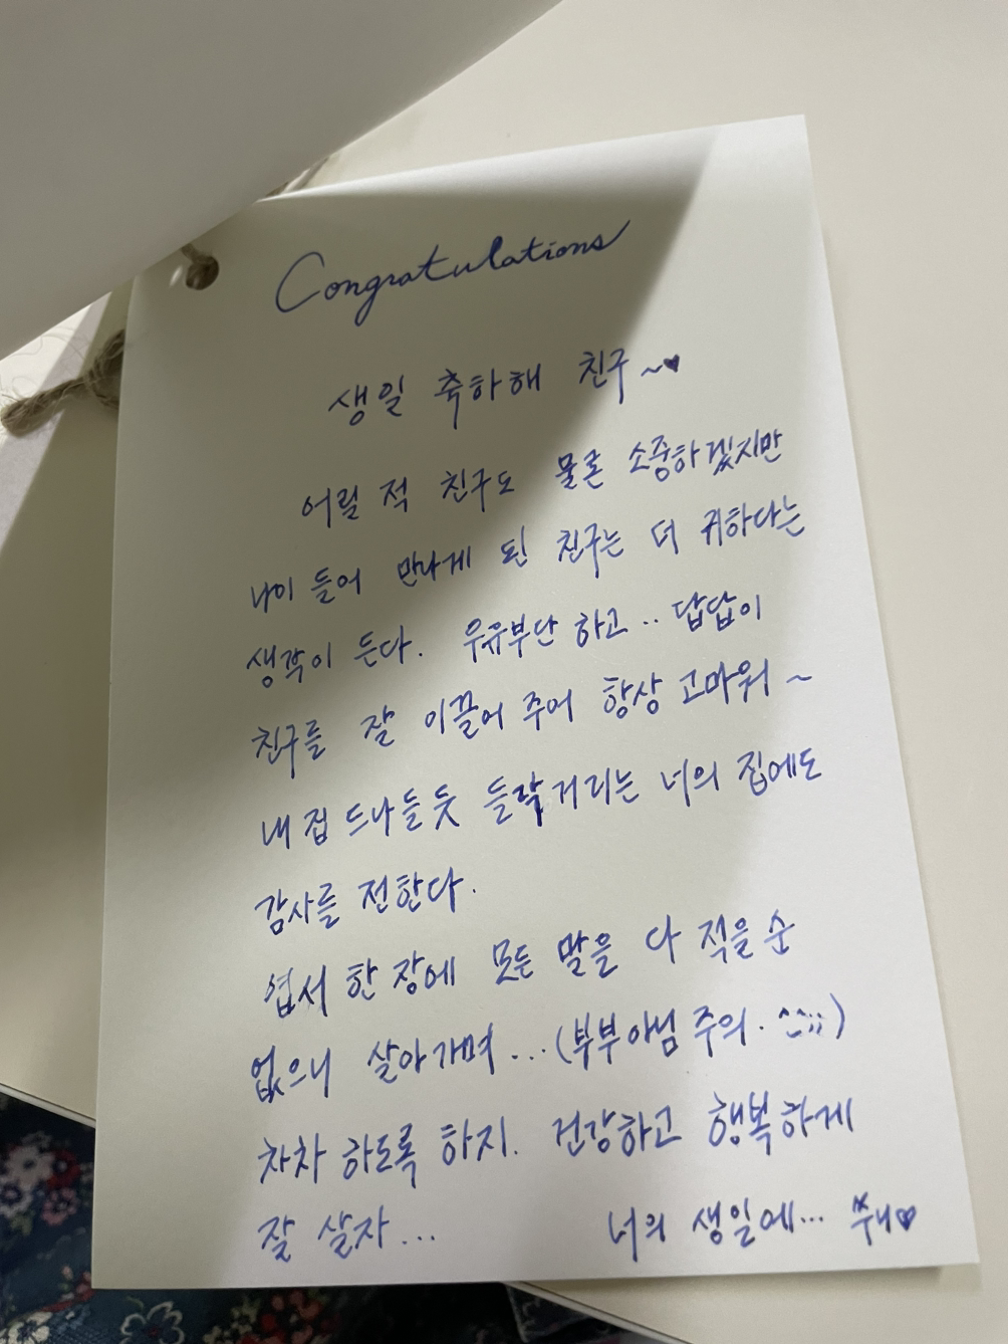 Congratulations
생일 축하해 친구~♥
어릴 적 친구도 물론 소중하겠지만
나이 들어 만나게 된 친구는 더 귀하다는
생각이 든다. 우유부단 하고.. 답답이
친구를 잘 이끌어 주어 항상 고마워~
내 집 드나들듯 들락거리는 너의 집에도
감사를 전한다.
엽서 한 장에 모든 말을 다 적을 순
없으니 살아가며...(부부아님 주의. ^^;;)
차차 하도록 하지. 건강하고 행복하게
잘 살자...
너의 생일에... 쑤니♥